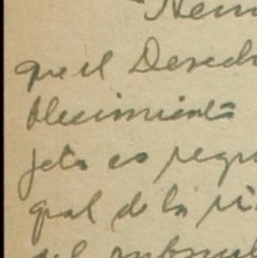 Hem
que el Derech
blecimiento
jeto es regu
gual de la ri
del